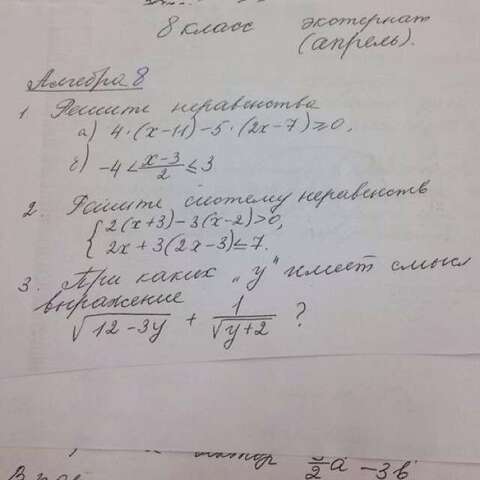 8 класс экстернат
(апрель).
Алгебра 8
1. Решите неравенства
а) 4·(x-11)-5·(2x-7)≥0,
б) -4<(x-3)/2≤3
2. Решите систему неравенств
{2(x+3)-3(x-2)>0,
2x+3(2x-3)≤7.
3. При каких "y" имеет смысл
выражение
√(12-3y) + 1/√(y+2) ?